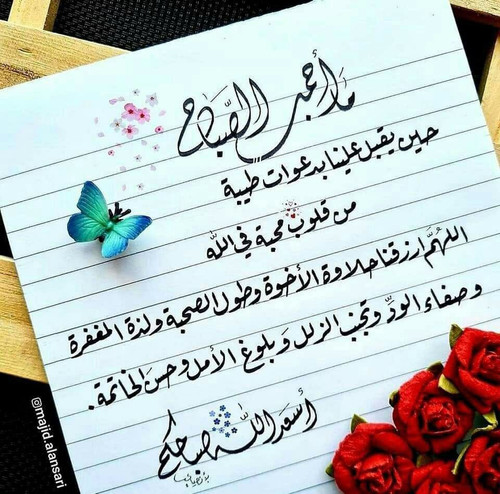 ما أجمل الصَّباح
حين يقبل علينا بدعوات طيبة
من قلوب محبة في الله
اللهُمَّ ارزقنا حلاوة الأخوة وطول الصحبة ولذة المغفرة
وصفاء الودّ وتجنب الزلل وبلوغ الأمل وحسن الخاتمة.
أسعد اللَّه صباحكم
@majid.alansari